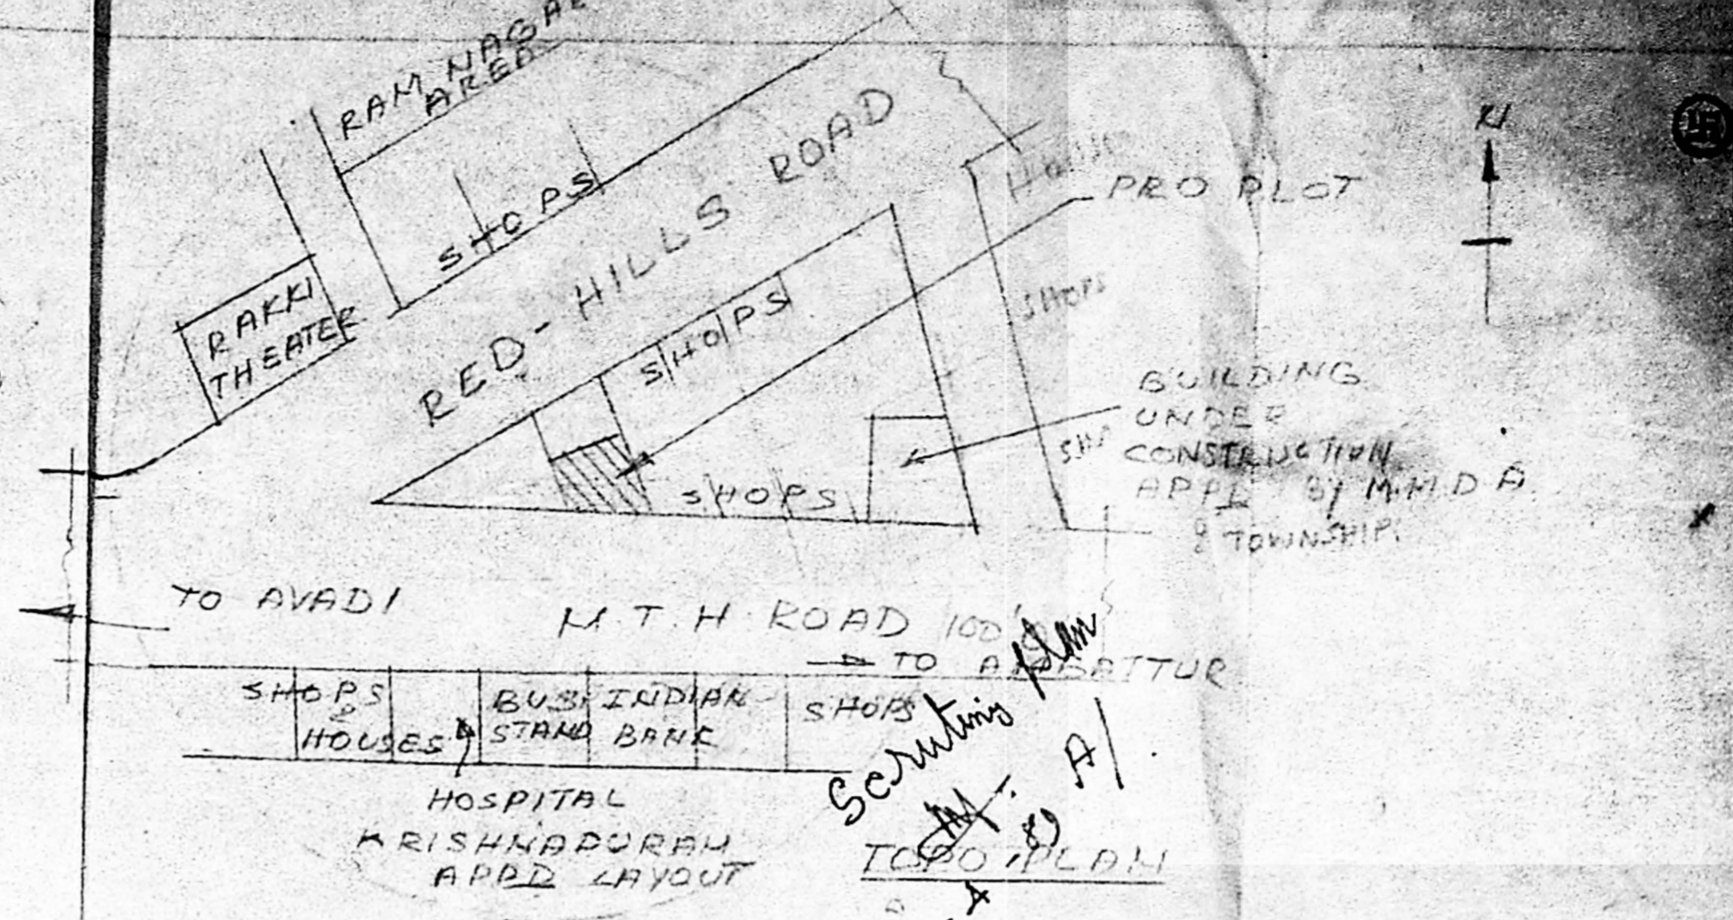 RAM NAGAR
AREA
N
SHOPS
RED-HILLS ROAD
House
PRO PLOT
RAKKI
THEATER
SHOPS
SHOPS
BUILDING
UNDER
CONSTRUCTION
APPD BY M.M.D.A
& TOWNSHIP.
SHOPS
TO AVADI
M.T.H. ROAD 100'
TO AMBATTUR
SHOPS
&
HOUSES
BUS
STAND
INDIAN
BANK
SHOPS
HOSPITAL
KRISHNAPURAM
APPD LAYOUT
Scrutiny plan
TOPO PLAN